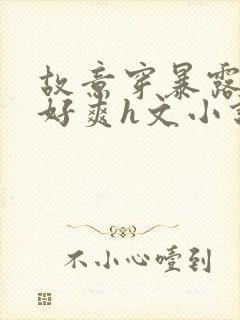 故意穿暴露
好爽h文小
不小心噎到